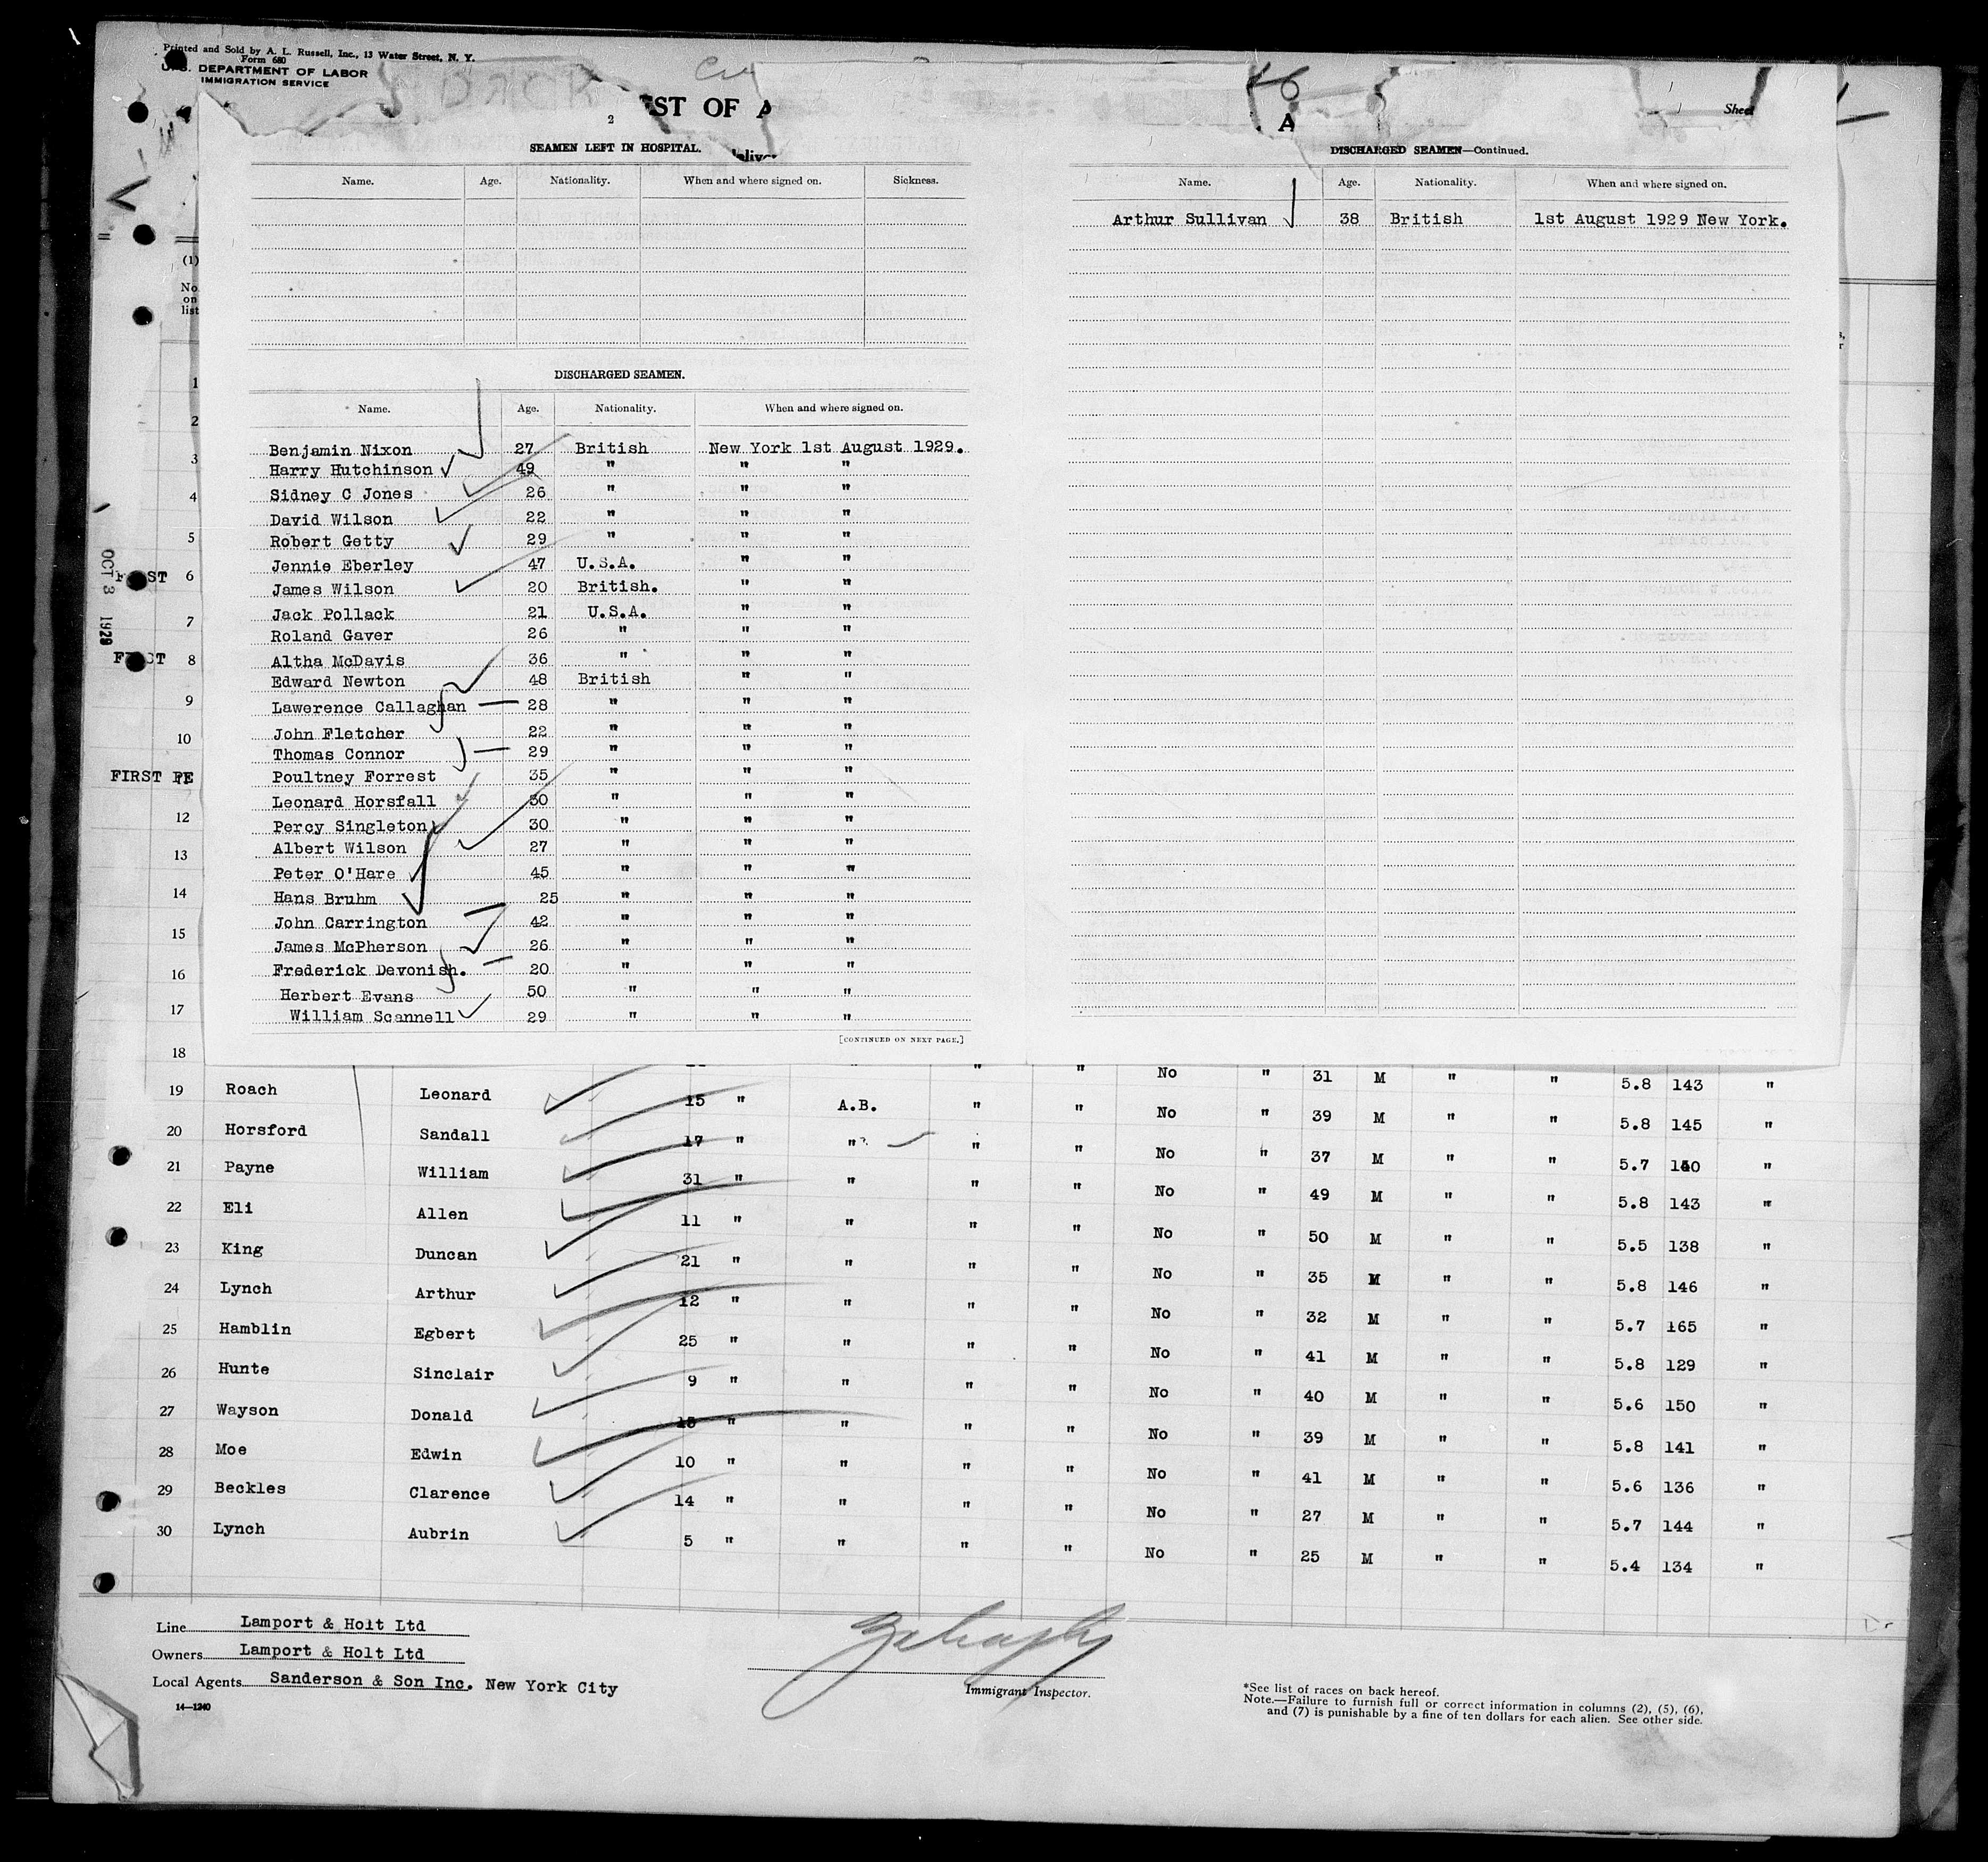 Printed and Sold by A. L. Russell, Inc., 13 Water Street, N. Y.
Form 680
U. S. DEPARTMENT OF LABOR
IMMIGRATION SERVICE
ST OF A
A
Sheet
2
SEAMEN LEFT IN HOSPITAL.
Name. Age. Nationality. When and where signed on. Sickness.
DISCHARGED SEAMEN.
Name. Age. Nationality. When and where signed on.
Benjamin Nixon 27 British New York 1st August 1929.
Harry Hutchinson 49 " " "
Sidney C Jones 26 " " "
David Wilson 22 " " "
Robert Getty 29 " " "
Jennie Eberley 47 U.S.A. " "
James Wilson 20 British. " "
Jack Pollack 21 U.S.A. " "
Roland Gaver 26 " " "
Altha McDavis 36 " " "
Edward Newton 48 British " "
Lawerence Callaghan 28 " " "
John Fletcher 22 " " "
Thomas Connor 29 " " "
Poultney Forrest 35 " " "
Leonard Horsfall 30 " " "
Percy Singleton 30 " " "
Albert Wilson 27 " " "
Peter O'Hare 45 " " "
Hans Bruhm 25 " " "
John Carrington 42 " " "
James McPherson 26 " " "
Frederick Devonish. 20 " " "
Herbert Evans 50 " " "
William Scannell 29 " " "
[CONTINUED ON NEXT PAGE.]
DISCHARGED SEAMEN—Continued.
Name. Age. Nationality. When and where signed on.
Arthur Sullivan 38 British 1st August 1929 New York.
(1)
No.
on
list
1
2
3
4
5
6
7
8
9
10
FIRST PE
12
13
14
15
16
17
18
OCT 3 1929
" " No " 31 M " " 5.8 143 "
19 Roach Leonard 15 " A.B. " " No " 39 M " " 5.8 145 "
20 Horsford Sandall 17 " " " " No " 37 M " " 5.7 140 "
21 Payne William 31 " " " " No " 49 M " " 5.8 143 "
22 Eli Allen 11 " " " " No " 50 M " " 5.5 138 "
23 King Duncan 21 " " " " No " 35 M " " 5.8 146 "
24 Lynch Arthur 12 " " " " No " 32 M " " 5.7 165 "
25 Hamblin Egbert 25 " " " " No " 41 M " " 5.8 129 "
26 Hunte Sinclair 9 " " " " No " 40 M " " 5.6 150 "
27 Wayson Donald 15 " " " " No " 39 M " " 5.8 141 "
28 Moe Edwin 10 " " " " No " 41 M " " 5.6 136 "
29 Beckles Clarence 14 " " " " No " 27 M " " 5.7 144 "
30 Lynch Aubrin 5 " " " " No " 25 M " " 5.4 134 "
Line Lamport & Holt Ltd
Owners Lamport & Holt Ltd
Local Agents Sanderson & Son Inc. New York City
14—1240
Immigrant Inspector.
*See list of races on back hereof.
Note.—Failure to furnish full or correct information in columns (2), (5), (6),
and (7) is punishable by a fine of ten dollars for each alien. See other side.